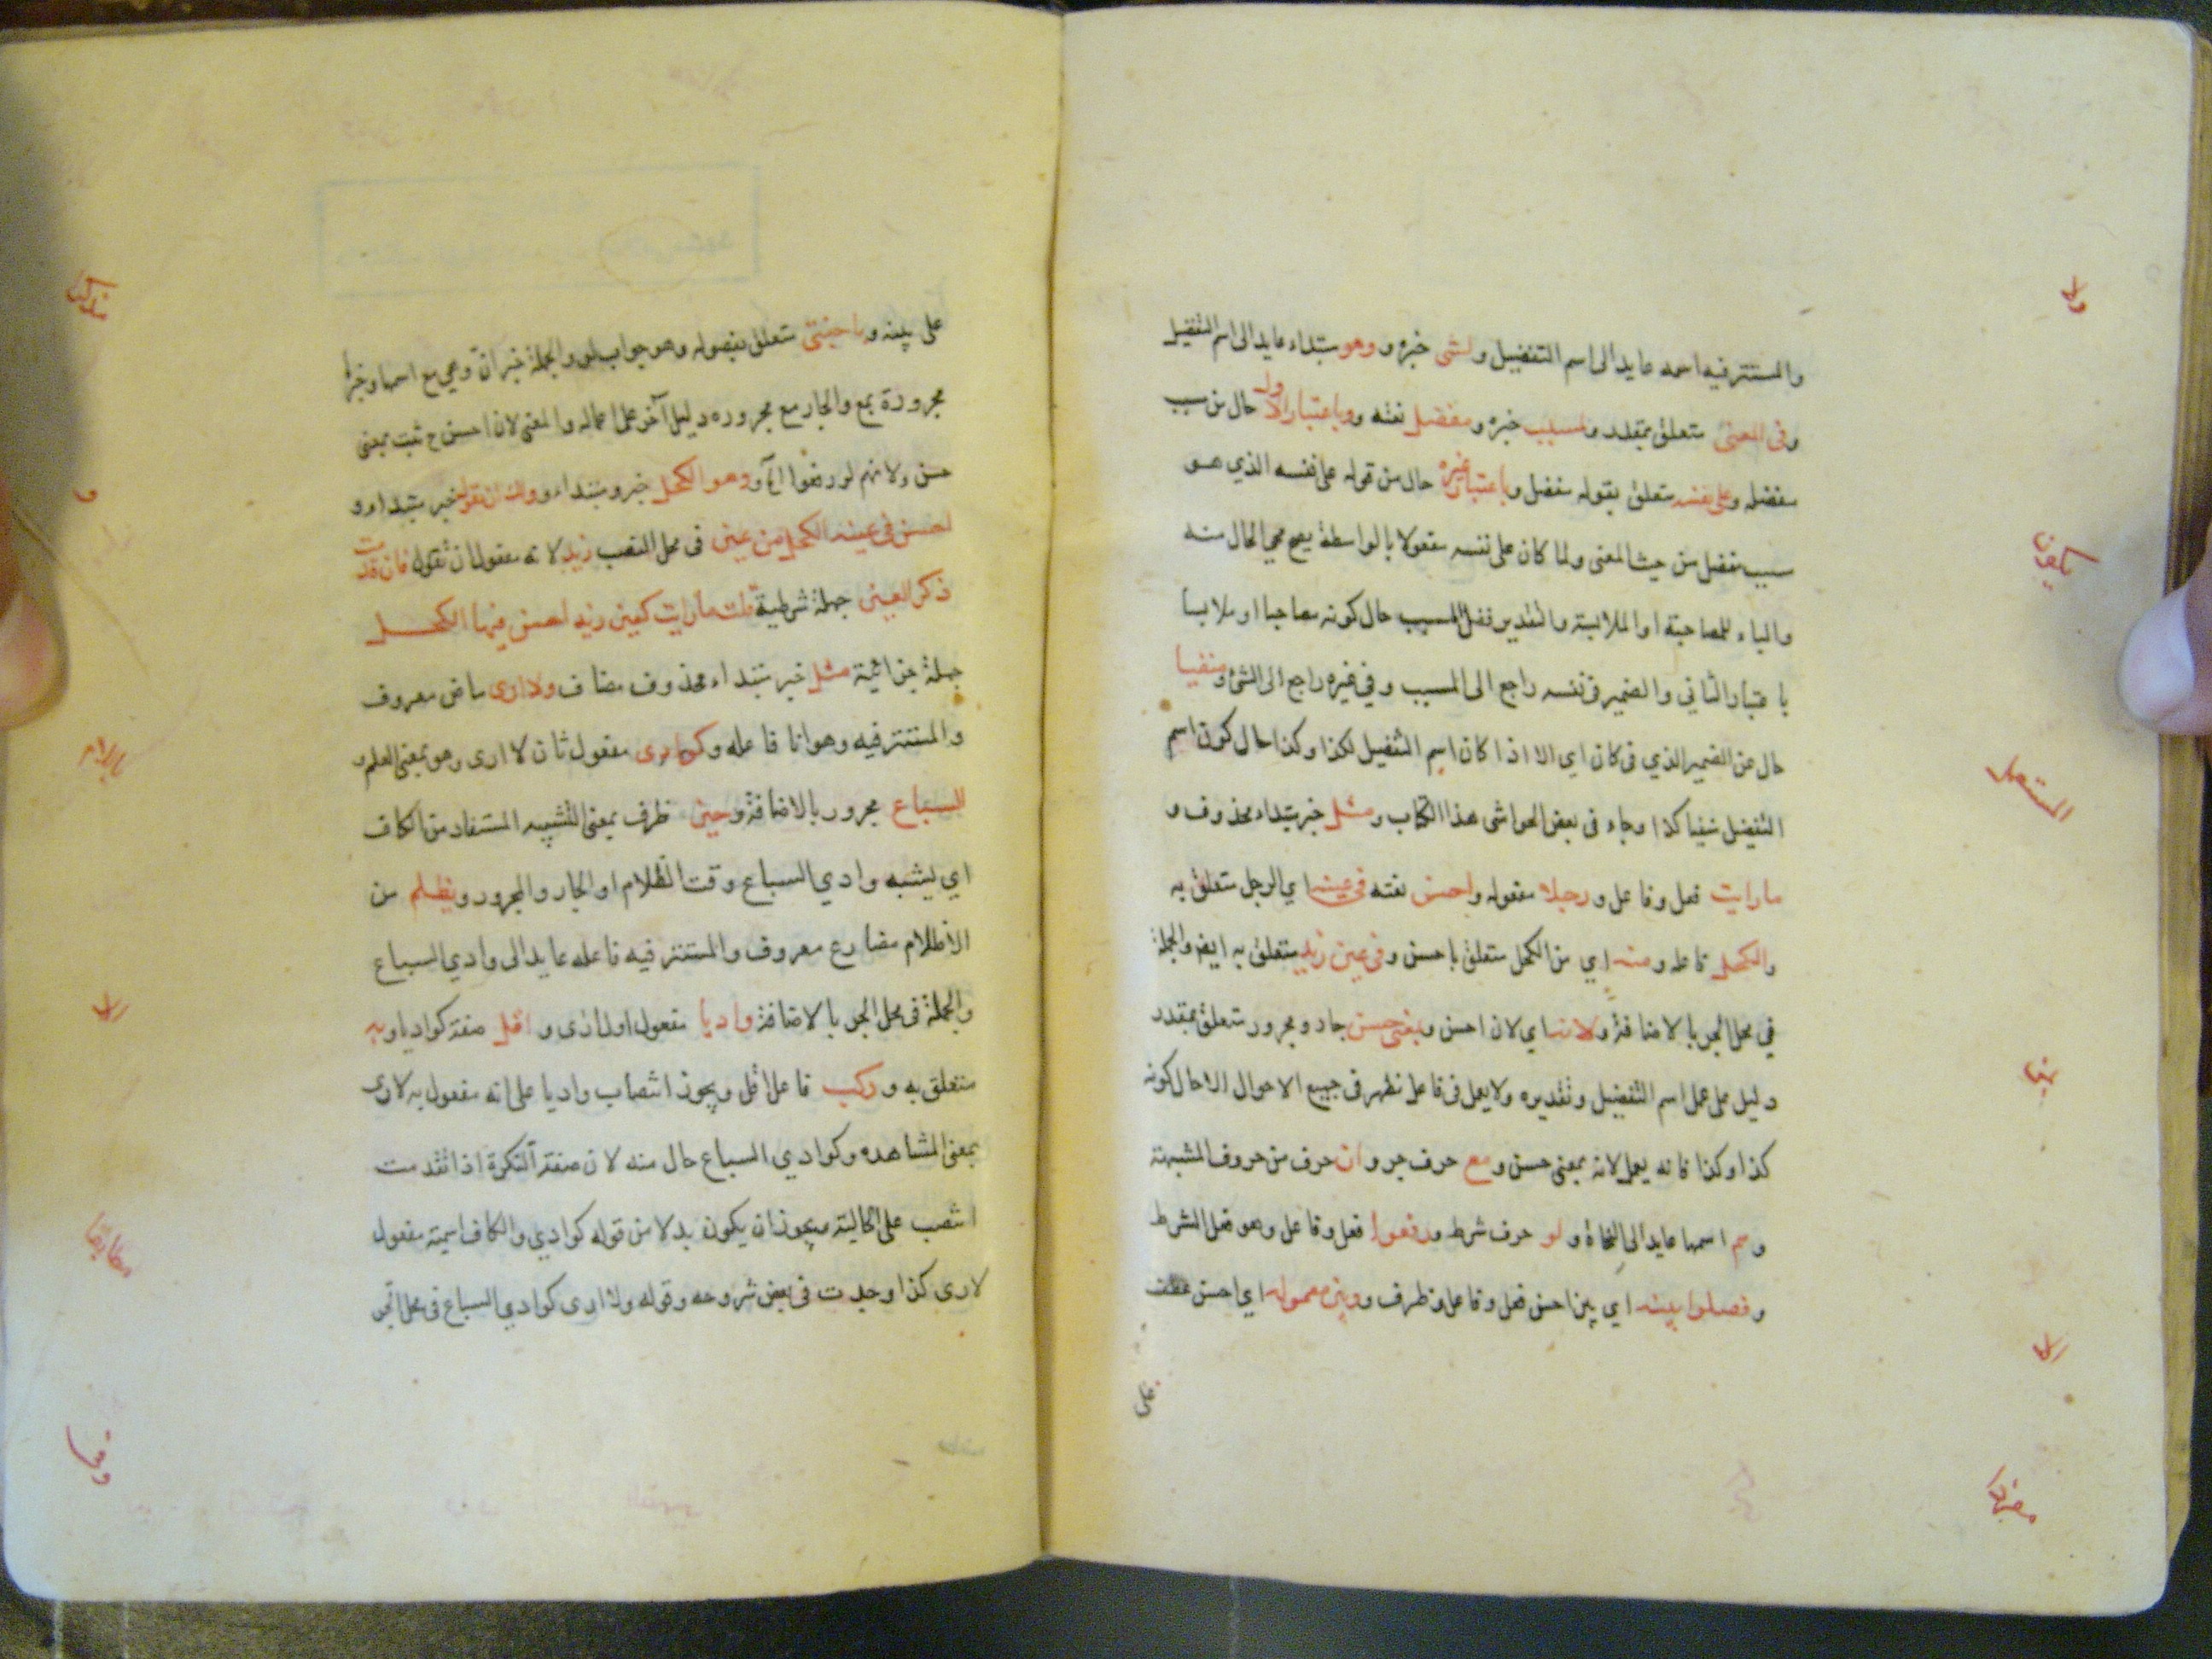 والمستتر فيه اسمه عايد الى اسم التفضيل ولشى خبره ووهو مبتداء عايد الى اسم التفضيل
وفى المعنى متعلق بمقدر ولمسبب خبره ومفضل نعته ووباعتبار الاول حال من سبب
مفضله وعلى نفسه متعلق بقوله مفضل وباعتبار غيره حال من قوله على نفسه الذي هو
سبب مفضل من حيث المعنى ولما كان على نفسه مفعولا بالواسطة يصح مجى الحال منه
والباء للمصاحبته او الملابسته والتقدير فضل المسبب حال كونه مصاحبا او ملابسا
باعتبار الثاني والضمير فى نفسه راجع الى المسبب وفي غيره راجع الى الشئ ومنفيا
حال عن الضمير الذي فى كان اي الا اذا كان اسم التفضيل لكذا وكذا حال كون اسم
التفضيل منفيا كذا وجاء فى بعض الحواشى هذا الكتاب ومثل خبر مبتداء محذوف و
ما رايت فعل وفاعل ورجلا مفعوله واحسن نعته فى عينه اي الرجل متعلق به
والكحل فاعله ومنه اي من الكحل متعلق باحسن وفى عين زيد متعلق به ايضا والجملة
في محل الجر بالاضافة ولانه اي لان احسن وبمعنى حسن جار ومجرور متعلق بمقدر
دليل على عمل اسم التفضيل وتقديره ولا يعمل فى فاعل مظهر فى جميع الاحوال الا حال كونه
كذا وكذا فانه يعمل لانه بمعنى حسن ومع حرف جر وان حرف من حروف المشبهة
وهم اسمها عايد الى النحاة ولو حرف شرط ورفعوا فعل وفاعل وهو فعل الشرط
وفصلوا بينه اي بين احسن فعل وفاعل وظرف ووبين معموله اي احسن عطف
على
على بينه وباجنبى متعلق بفصوله وهو جواب لو والجملة خبر ان وهي مع اسمها وخبرها
مجرورة بمع والجار مع مجروره دليل آخر على اعماله والمعنى لان احسن ح ثبت بمعنى
حسن ولانهم لو رفعوا الخ ووهو الكحل خبر ومبتداء وولك ان تقول خبر مبتداء و
احسن فى عينه الكحل من عين فى محل النصب زيد لانه مفعول ان تقول فان قدمت
ذكر العين جملة شرطية قلت ما رايت كعين زيد احسن فيها الكحل
جملة جزائية مثل خبر مبتداء محذوف مضاف ولا ارى ماض معروف
والمستتر فيه وهو انا فاعله وكوادى مفعول ثان لا ارى وهو بمعنى العلم و
السباع مجرور بالاضافة وحين ظرف بمعنى التشبيه المستفاد من الكاف
اي يشبه وادي السباع وقت الظلام او الجار والمجرور ويظلم من
الاظلام مضارع معروف والمستتر فيه فاعله عايد الى وادي السباع
والجملة فى محل الجر بالاضافة واديا مفعول اول ارى واقل صفة كواديا وبه
متعلق به وركب فاعل اقل ويجوز انتصاب واديا على انه مفعول به لارى
بمعنى المشاهده وكوادي السباع حال منه لان صفة النكرة اذا تقدمت
انتصب على الحالية ويجوز ان يكون بدلا من قوله كوادي والكاف اسمية مفعول
لارى كذا وجدت فى بعض شروحه وقوله ولا ارى كوادي السباع فى محل الجر